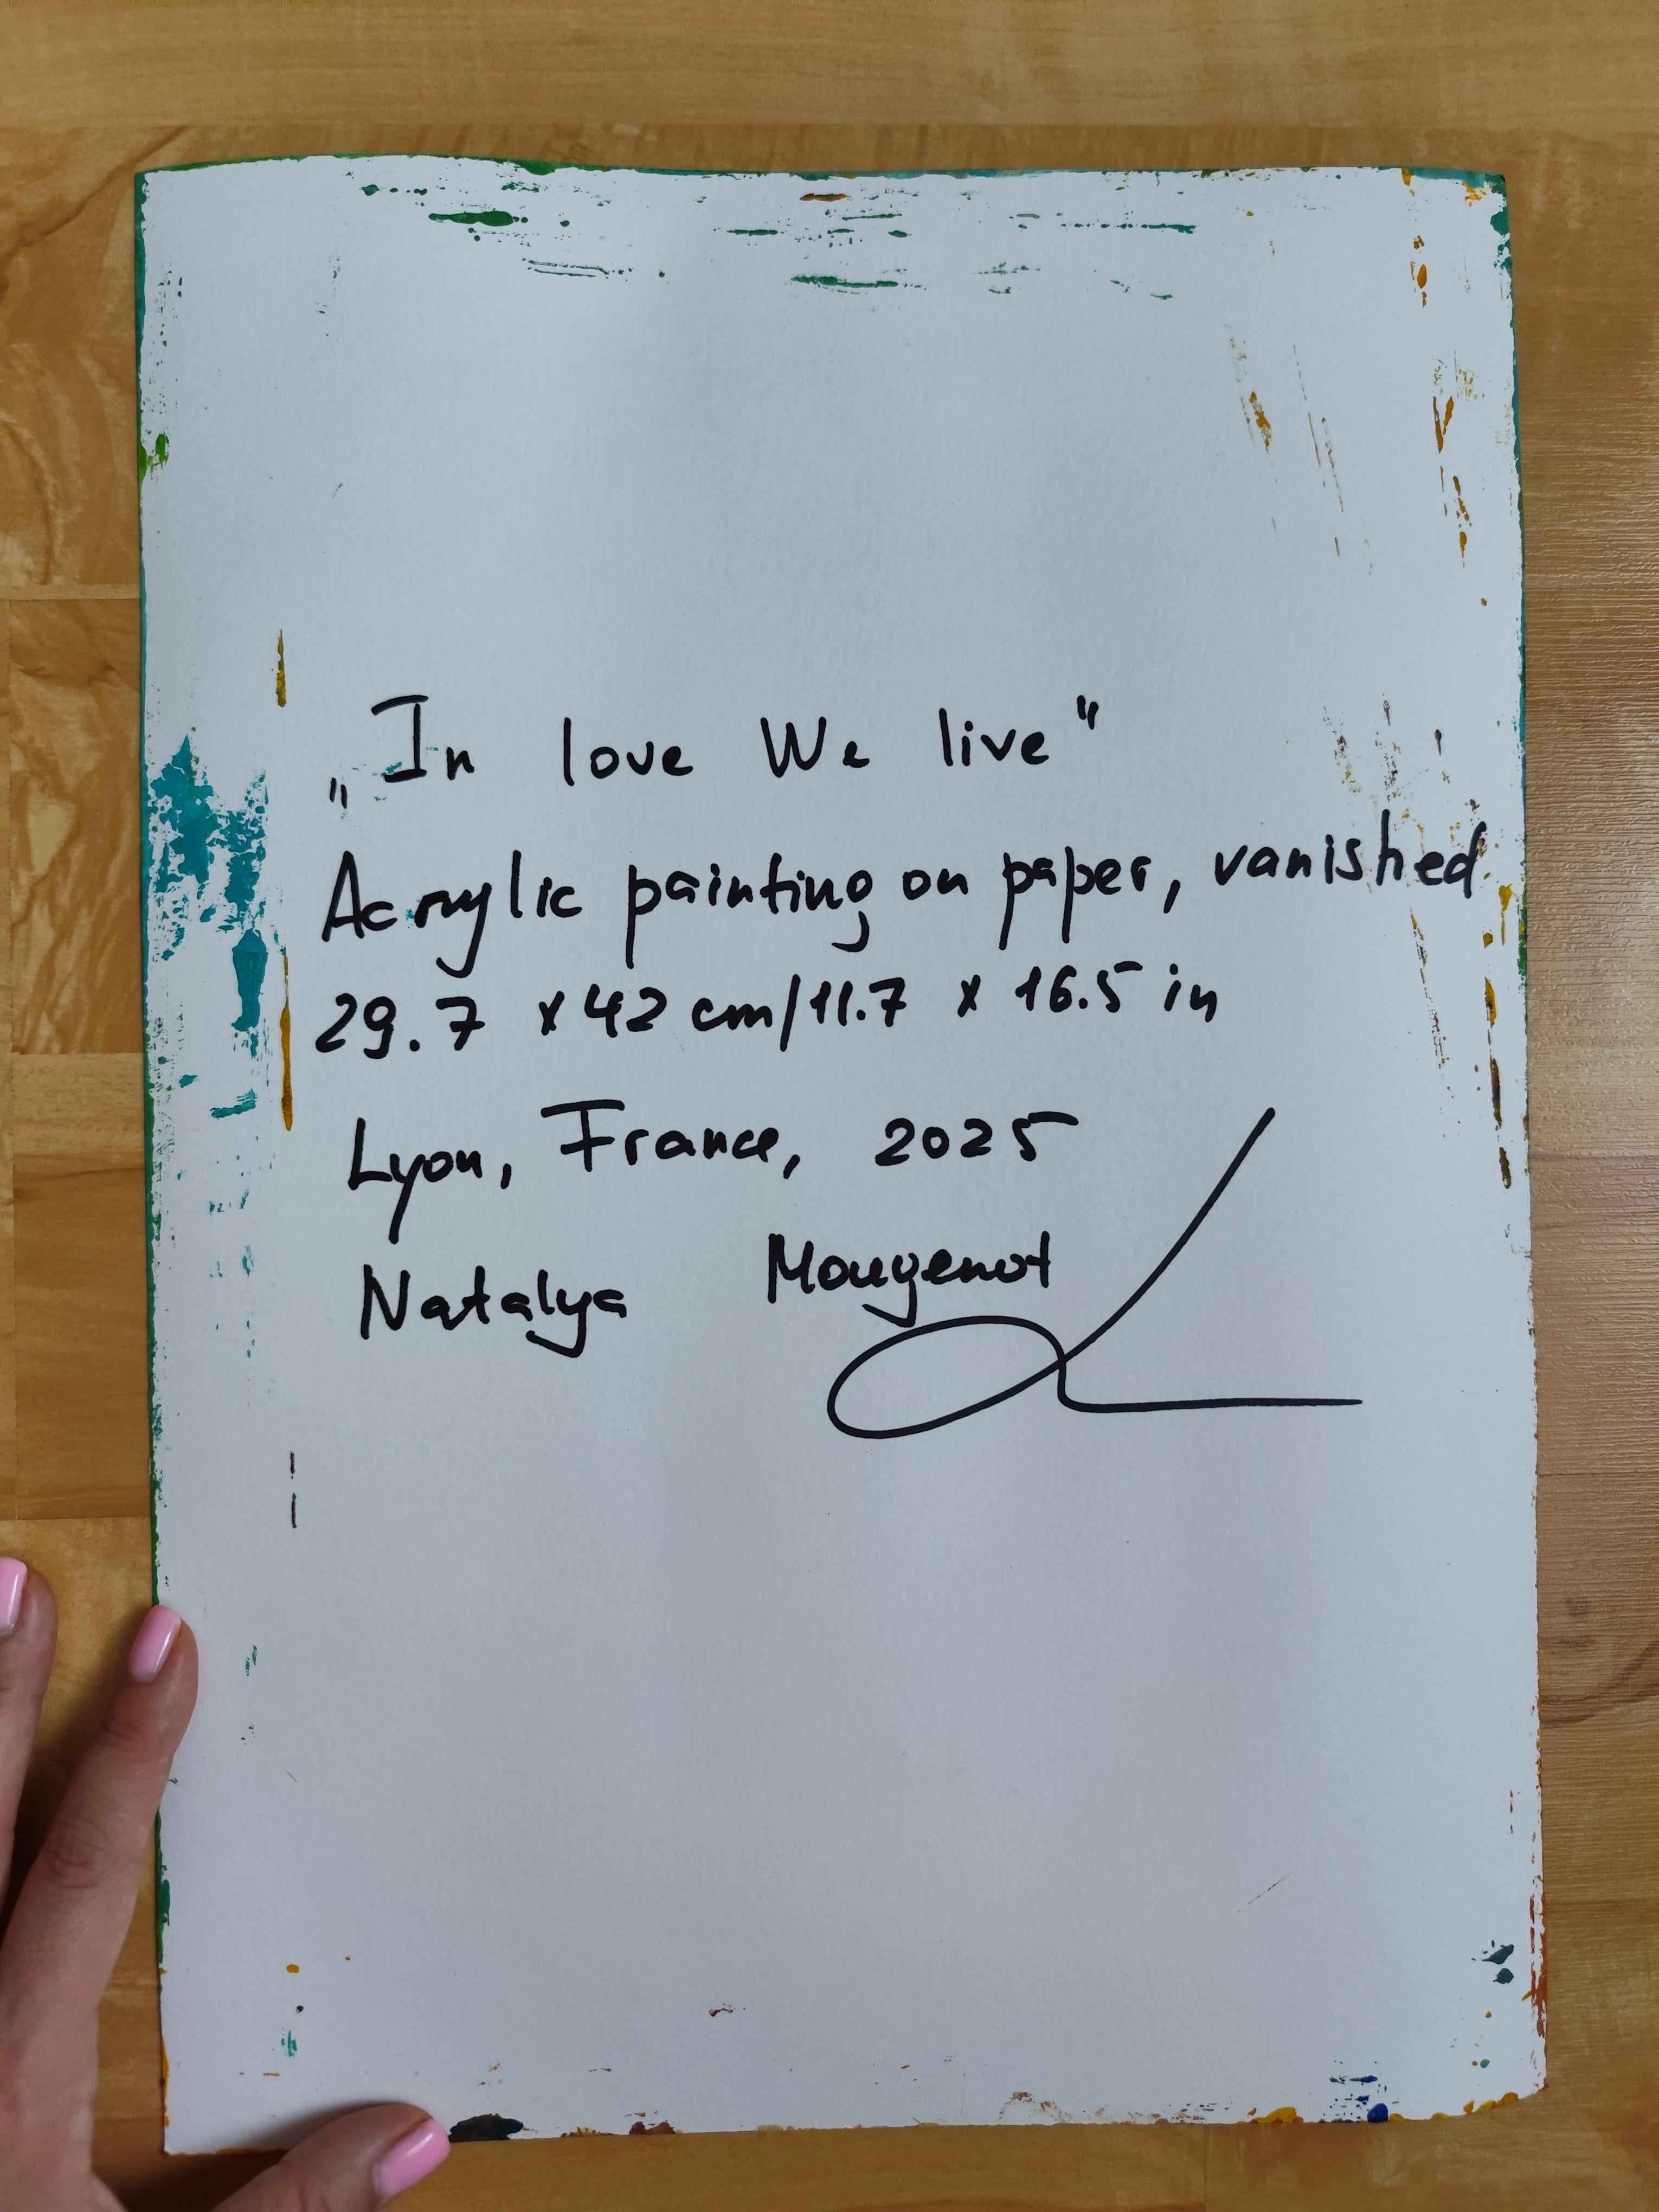 „In love We live“
Acrylic painting on paper, vanished
29.7 x 42 cm/11.7 x 16.5 in
Lyon, France, 2025
Natalya Mougenot